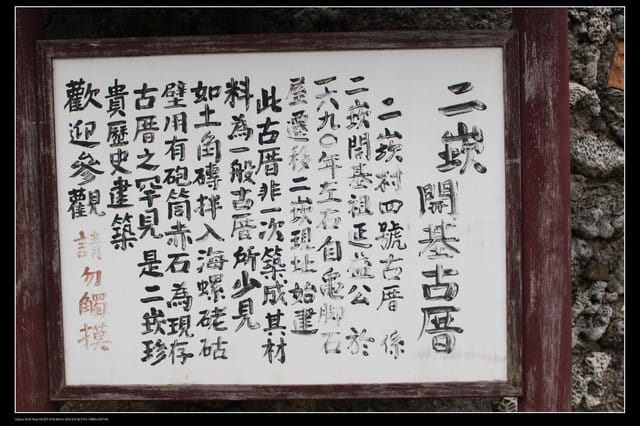 二崁
開基古厝
二崁村四號古厝係
二崁開基祖廷益公於
一六九〇年左右自龜腳石
屋遷移二崁現址始建
此古厝非一次築成其材
料為一般古厝所少見
如土角磚拌入海螺硓砧
壁用有砲筒赤石為現存
古厝之罕見是二崁珍
貴歷史建築
歡迎參觀請勿觸摸